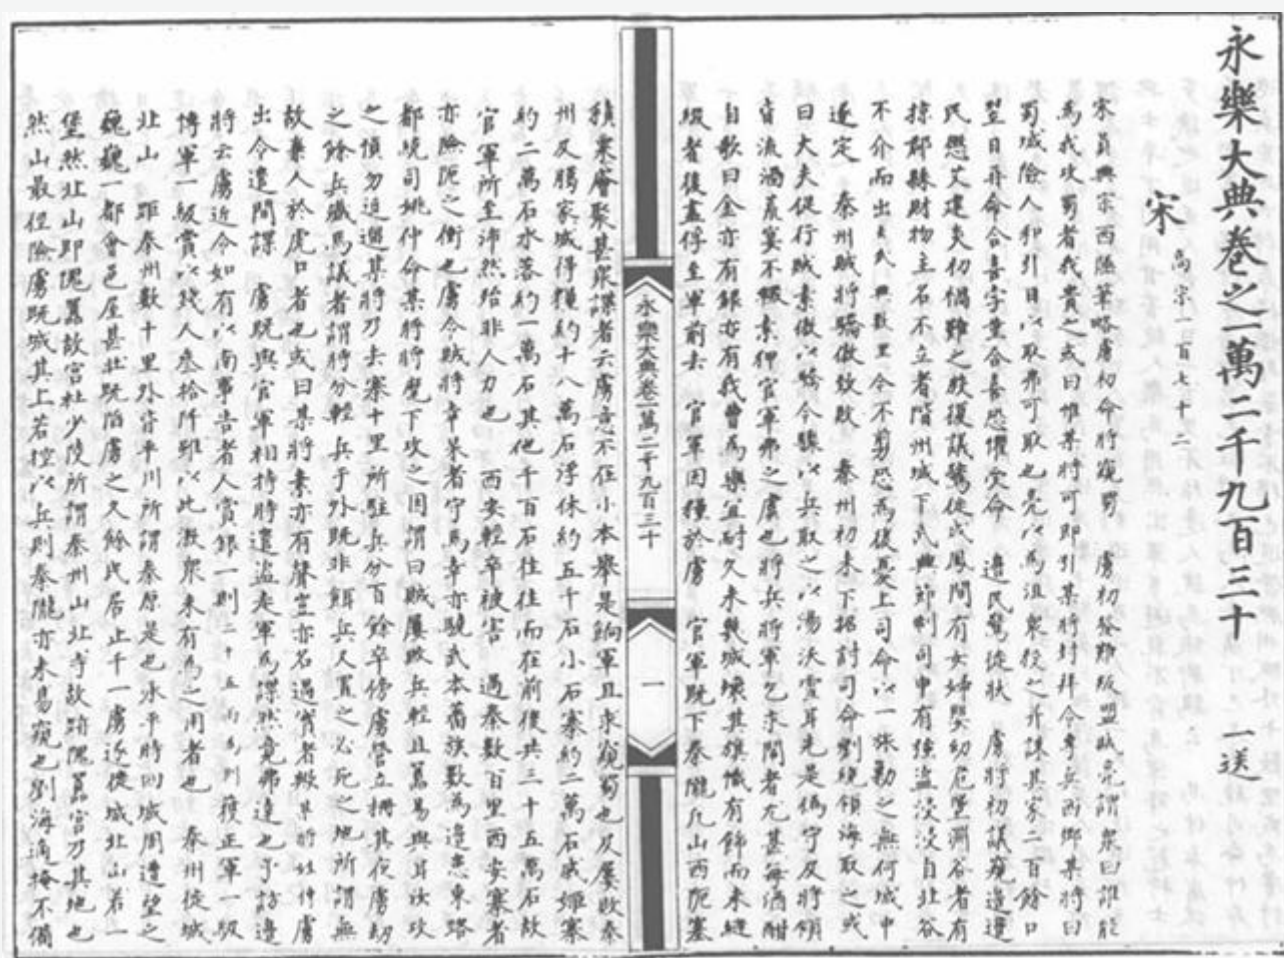 永樂大典卷之一萬二千九百三十 一送
宋 高宗一百七十二
宋員興宗西陲筆略虜初命將窺蜀 虜初發難叛盟賊亮謂眾曰誰能
為我攻蜀者我貴之或曰惟某將可即引某將封拜令率兵西鄉某將曰
蜀城險人仰引目以取弗可取也亮以為沮眾役之并誅其家二百餘口
翌日再命合喜字董合喜恐懼受命 邊民驚徙狀 虜將初議窺邊邊
民懲艾建炎初倡難之殘復議驚徙或夙間有女婦嬰幼危墜澗谷者有
掠鄰縣財物主名不立者階州城下式典節制司申有強盜浸浸自北谷
不介而出 數里令不剪恐為後憂上司命以一旅勦之無何城中
遂定 秦州賊將驕傲致敗 秦州初未下招討司命劉現領海取之或
曰大夫促行賊素傲以驕今驟以兵取之以湯沃雪耳先是偽守及將領
皆流湎荒宴不輟素狎官軍弗之虞也將兵將軍乞求間者尤甚每酒酣
自歌曰金亦有銀亦有我曹為樂宜耐久未幾城壞其旗幟有飾而未縫
綴者後盡俘至軍前去 官軍因糧於虜 官軍既下秦隴凡山西阨塞
積粟屬聚甚眾謀者云虜意不在小本舉是餉軍且求窺蜀也及屢敗秦
州及騰家城得糧約十八萬石浮休約五千石小石寨約二萬石威 寨
約二萬石水落約一萬石其他千百石往往而在前後共三十五萬石故
官軍所至沛然給非人力也 西安輕卒被害 過秦數百里西安寨者
亦險阨之衝也虜令賊將幸杲者守焉幸亦驍武本蕃族數為邊患東路
都統司姚仲命某將將麾下攻之因謂曰賊屢敗兵輕且寡易與耳汝攻
之慎勿迫邇某將乃去寨十里所駐兵分百餘卒傍虜營立柵其夜虜劫
之餘兵殲焉議者謂將分輕兵于外既非餌兵又置之必死之地所謂無
故棄人於虎口者也或曰某將素亦有聲豈亦名過實者 仲虜
出令遣間諜 虜既與官軍相持時遣盜走軍為諜然竟弗達也 訪邊
將云虜近令如有以南事告者人賞銀一則二十五兩 獲正軍一級
博軍一級賞以錢人參拾阡雖以此激眾未有為之用者也 秦州徙城
北山 距秦州數十里外皆平川所謂秦原是也承平時四城周遭望之
巍巍一都會邑屋甚壯既陷虜之久餘民居止千一虜近徙城北山若一
堡然北山即隗囂故宮杜少陵所謂秦州山北寺故跡隗囂宮乃其地也
然山最徑險虜既城其上若控以兵則秦隴亦未易窺也劉海 掩不備
永樂大典卷一萬二千九百三十
一